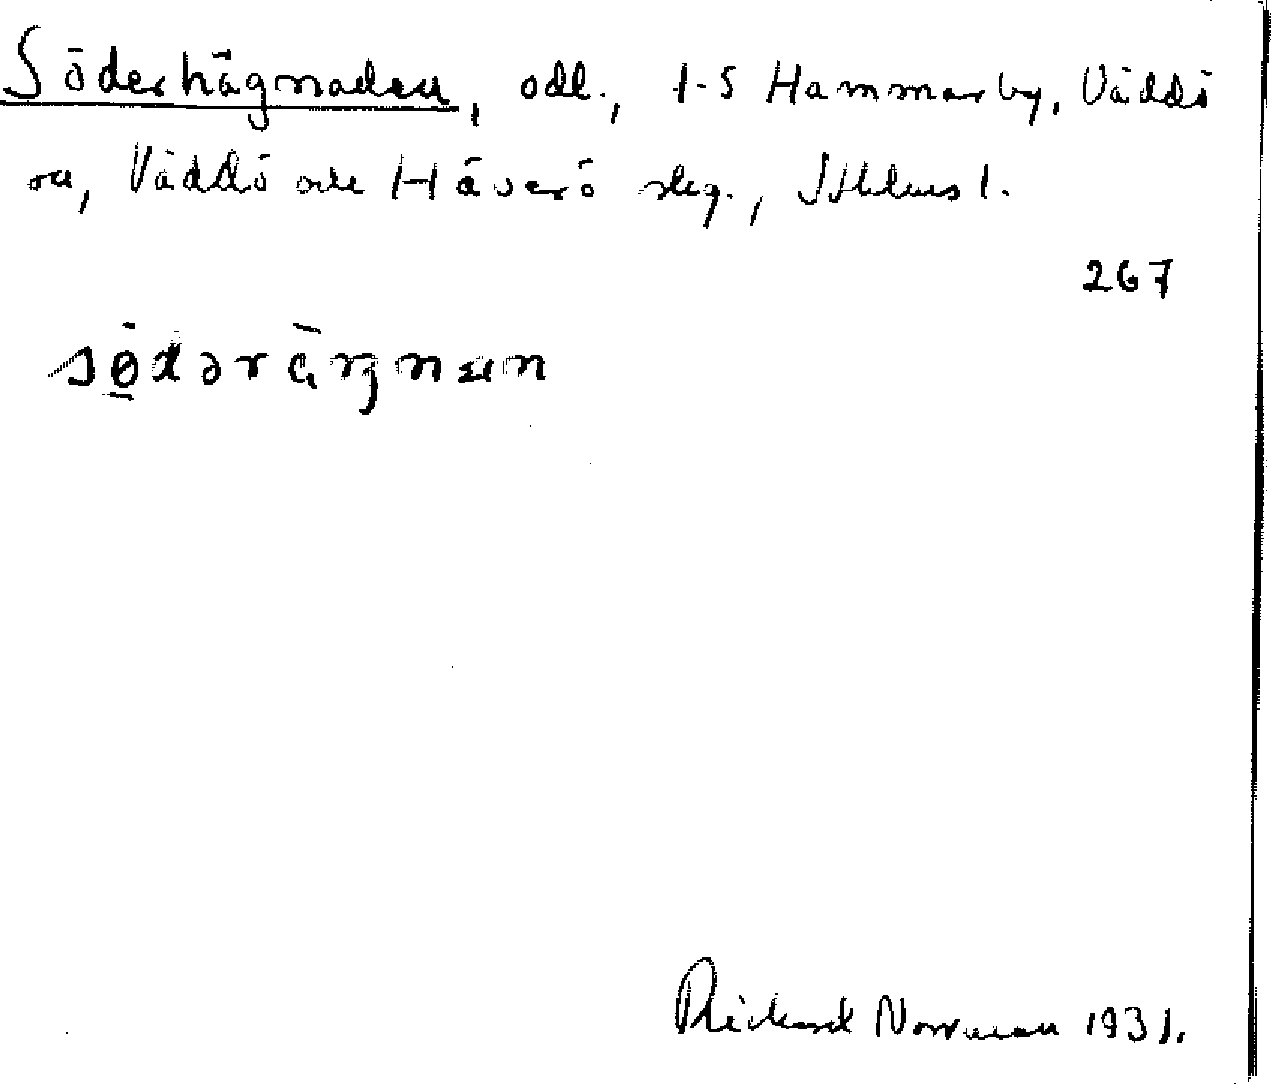 Söderhägnaden, odl., 1-5 Hammarby, Väddö
sn, Väddö och Häverö skg., Sthlms l.
267
södəräŋnan
Richard Norrman 1931.